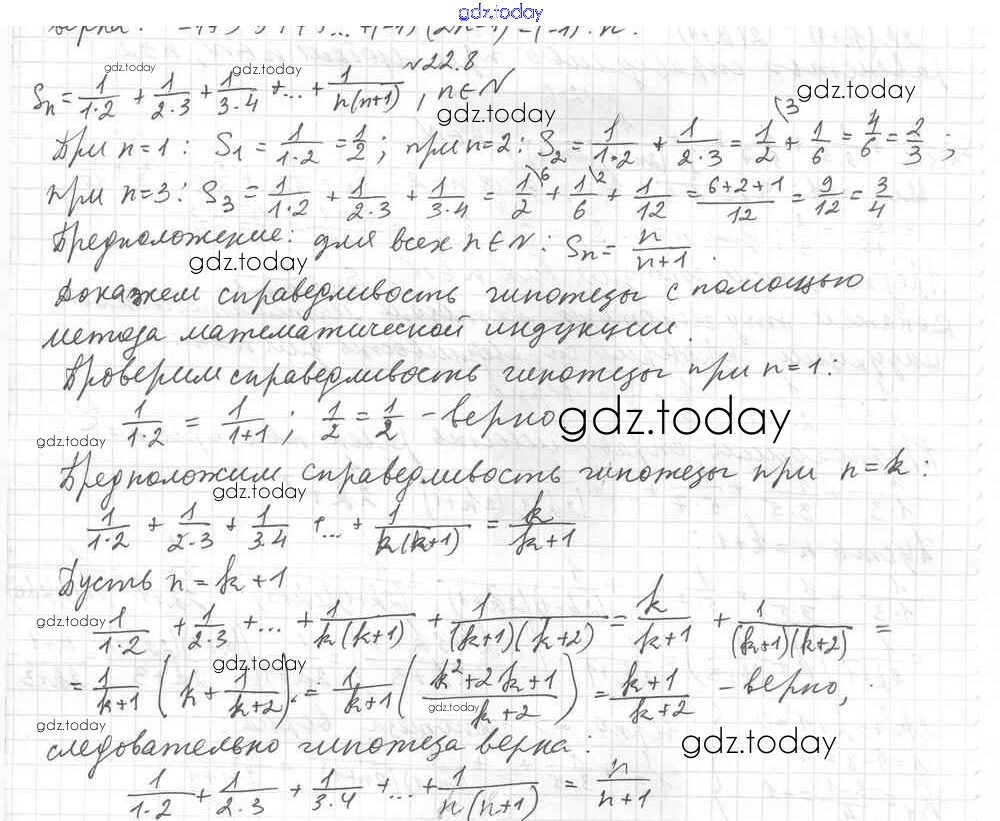 gdz.today
верна: -1+3-5+7+...+(-1)ⁿ(2n-1)=(-1)ⁿ·n.
№22.8
gdz.today gdz.today gdz.today
Sn = 1/(1·2) + 1/(2·3) + 1/(3·4) + ... + 1/(n(n+1)), n∈N
gdz.today
При n=1: S₁ = 1/(1·2) = 1/2; при n=2: S₂ = 1/(1·2) + 1/(2·3) = 1/2\3 + 1/6 = 4/6 = 2/3;
при n=3: S₃ = 1/(1·2) + 1/(2·3) + 1/(3·4) = 1/2\6 + 1/6\2 + 1/12 = (6+2+1)/12 = 9/12 = 3/4
Предположение: для всех n∈N: Sn = n/(n+1).
gdz.today
Докажем справедливость гипотезы с помощью
метода математической индукции.
Проверим справедливость гипотезы при n=1:
1/(1·2) = 1/(1+1); 1/2 = 1/2 - верно
gdz.today
gdz.today
Предположим справедливость гипотезы при n=k:
gdz.today
1/(1·2) + 1/(2·3) + 1/(3·4) + ... + 1/(k(k+1)) = k/(k+1)
Пусть n=k+1
gdz.today
1/(1·2) + 1/(2·3) + ... + 1/(k(k+1)) + 1/((k+1)(k+2)) = k/(k+1) + 1/((k+1)(k+2)) =
gdz.today
= 1/(k+1) (k + 1/(k+2)) = 1/(k+1) ((k²+2k+1)/(k+2)) = (k+1)/(k+2) - верно,
gdz.today
gdz.today
следовательно гипотеза верна:
gdz.today
1/(1·2) + 1/(2·3) + 1/(3·4) + ... + 1/(n(n+1)) = n/(n+1)